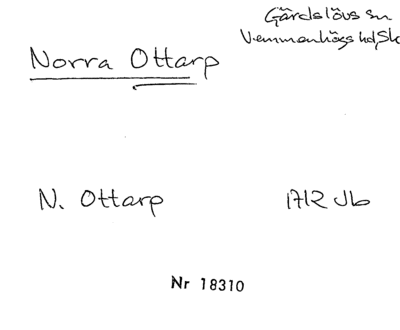 Gärdslövs sn
Vemmenhögs hd, Sk
Norra Ottarp
N. Ottarp 1712 Jb
Nr 18310